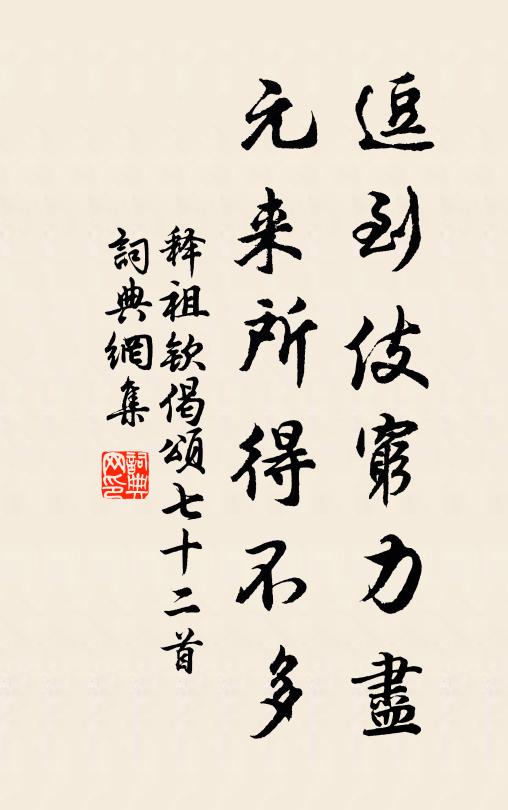 逗到伎窮力盡
元来所得不多
释祖钦偈頌七十二首
詞典網集
詞典網印